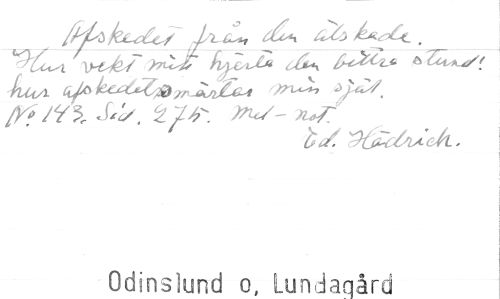 Afskedet från den älskade.
Hur vekt mitt hjerta den bittra stund!
hur afskedet smärtar min själ.
No 143. Sid. 275. Mel-not.
Ed. Hädrich.
Odinslund o, Lundagård